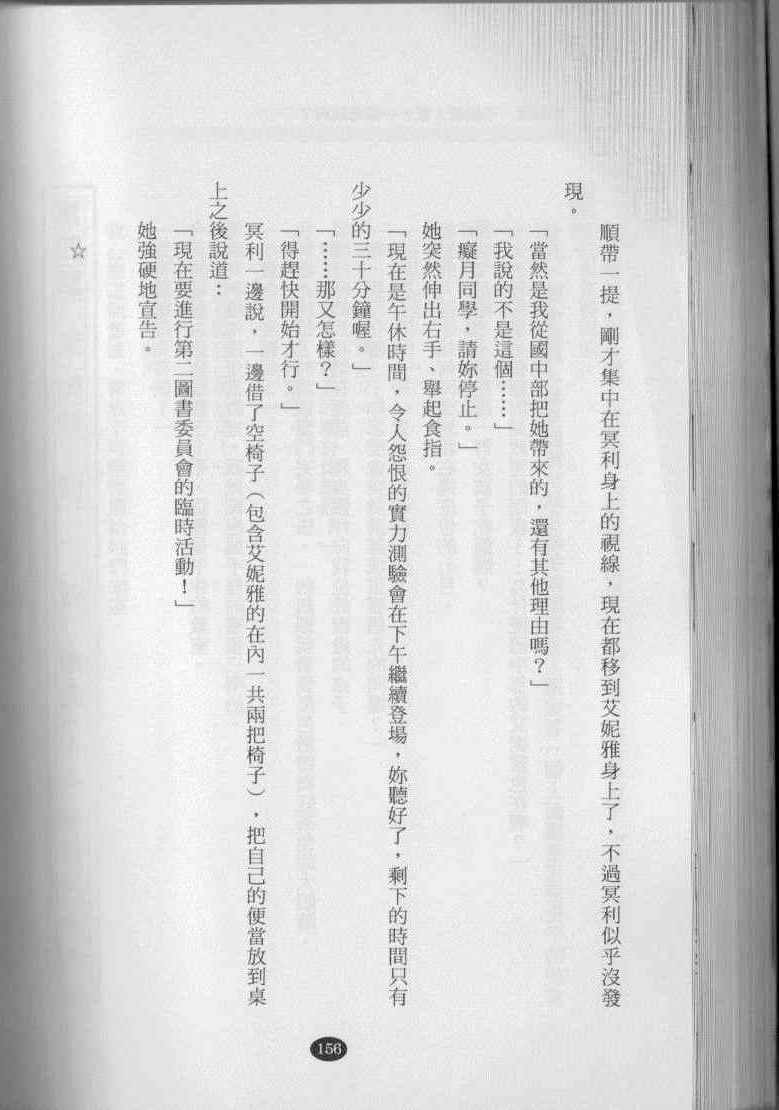 順帶一提，剛才集中在冥利身上的視線，現在都移到艾妮雅身上了，不過冥利似乎沒發
現。
「當然是我從國中部把她帶來的，還有其他理由嗎？」
「我說的不是這個……」
「癡月同學，請妳停止。」
她突然伸出右手、舉起食指。
「現在是午休時間，令人怨恨的實力測驗會在下午繼續登場，妳聽好了，剩下的時間只有
少少的三十分鐘喔。」
「……那又怎樣？」
「得趕快開始才行。」
冥利一邊說，一邊借了空椅子（包含艾妮雅的在內一共兩把椅子），把自己的便當放到桌
上之後說道：
「現在要進行第二圖書委員會的臨時活動！」
她強硬地宣告。
☆
156